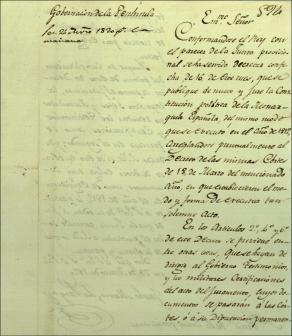 Gobernacion de la Peninsula
Exmo. Señor
Conformandose el Rey con
el parecer de la Junta provisio
nal se ha servido Decretar con fe
cha de 16 de este mes, que se
publique de nuevo y jure la Cons
titucion politica de la Monar
quia Española, del mismo modo
que se executó en el año de 1812,
arreglandose puntualmente al
Decreto de las mismas Cortes
de 18 de Marzo del mencionado
Año, en que establecieron el mo
do y forma de executar tan
solemne acto.
En los Articulos 2º, 4º y 6º
de este Decreto se previene en
tre otras cosas, que se hayan de
dirigir al Gobierno Testimonios,
y los militares Certificaciones
del acto del Juramento, cuyos do
cumentos se pasarán á las Cor
tes, ó á su Diputacion permanen